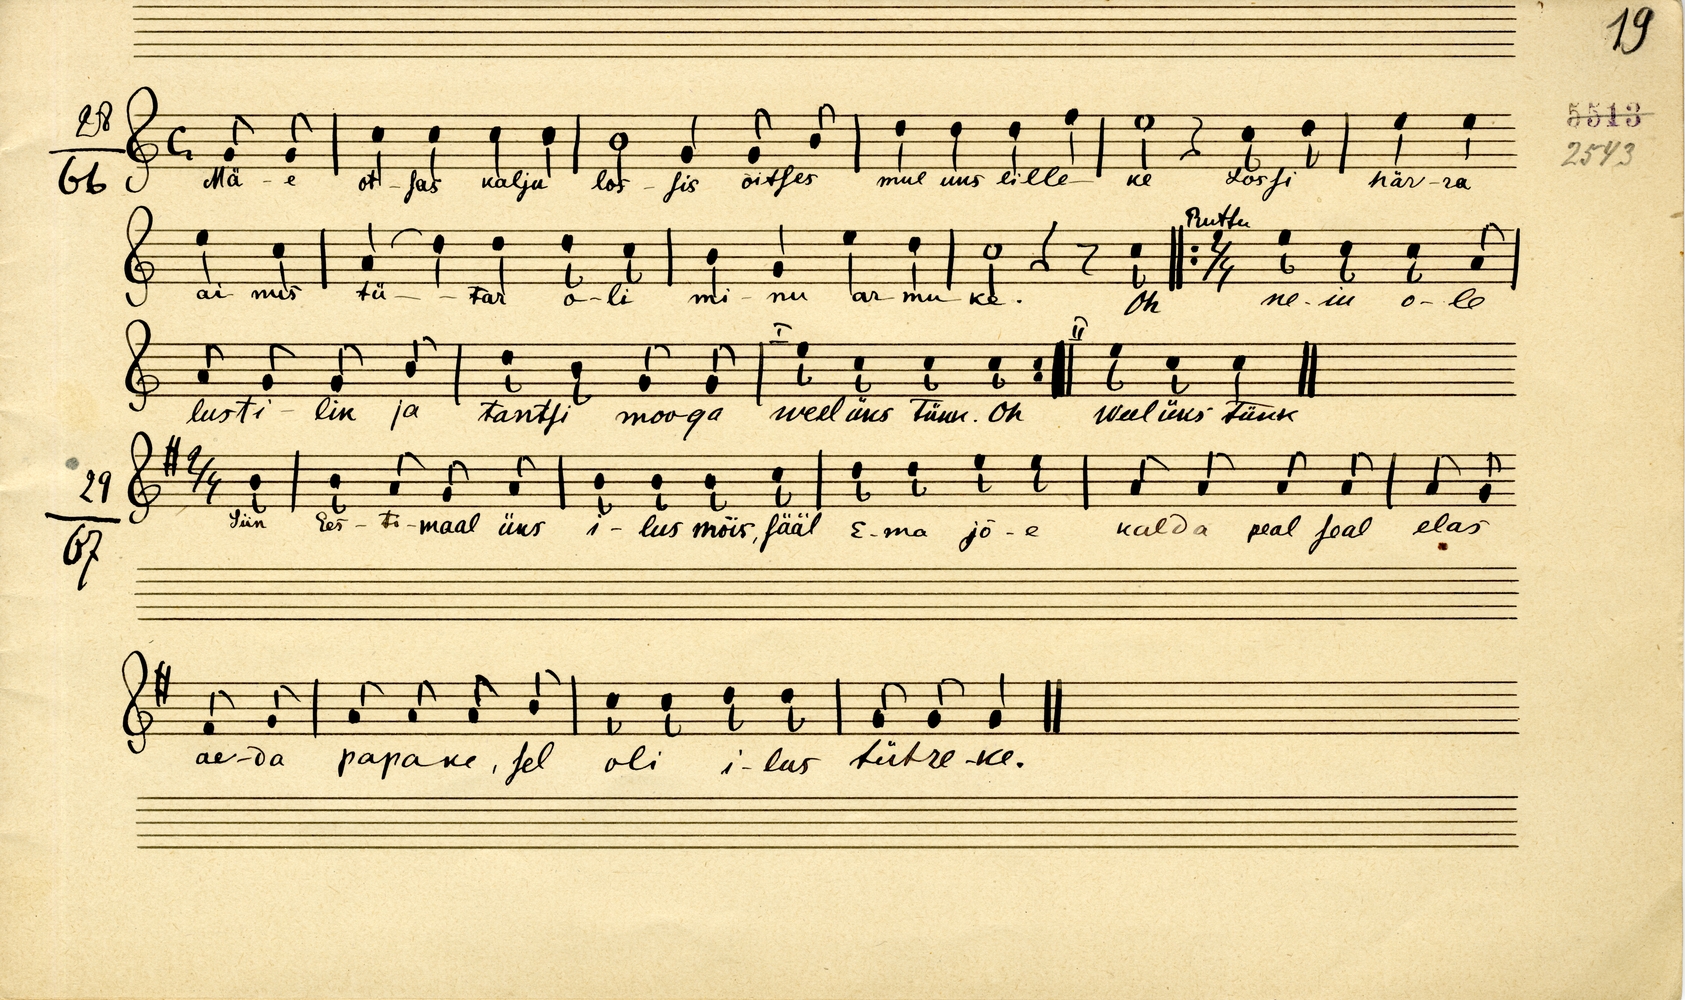 19
28
66
5513
2543
Mä - e ot - sas kalju los - sis õitses mul üks lille - ke Lossi här - ra
Ruttu
ai nus tü - - tar o - li mi - nu ar mu ke. Oh ne - iu o - le
I II
lusti - lik ja tantsi mooga weel üks tükk. Oh weel üks tükk
29
67
Siin Ees - ti - maal üks i - lus mõis, sääl E - ma jõ - e kalda peal seal elas
ae - da papake, sel oli i - lus tütre - ke.